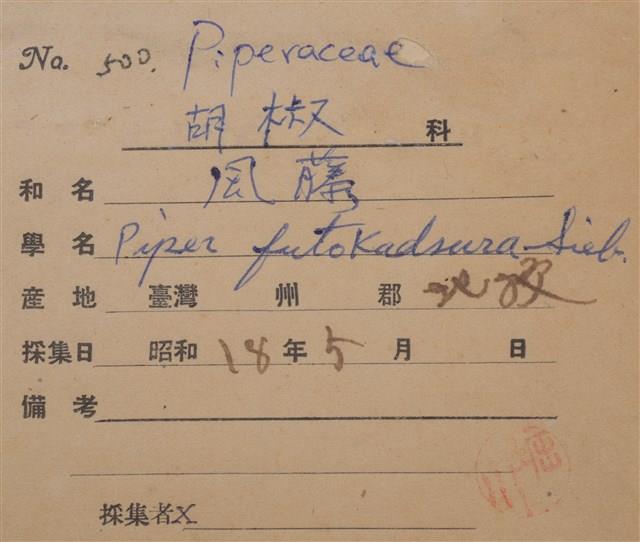 No. 500. Piperaceae
胡椒 科
和名 風藤
學名 Piper futokadsura Sieb.
産地 臺灣 州 郡
採集日 昭和 18 年 5 月 日
備考
採集者X